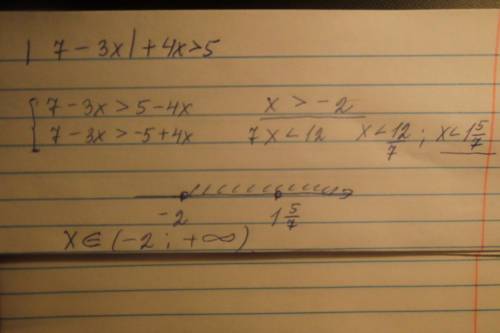 | 7 - 3x | + 4x > 5
7 - 3x > 5 - 4x x > -2
7 - 3x > -5 + 4x 7x < 12 x < 12/7 ; x < 1 5/7
-2 1 5/7
x ∈ (-2 ; +∞)